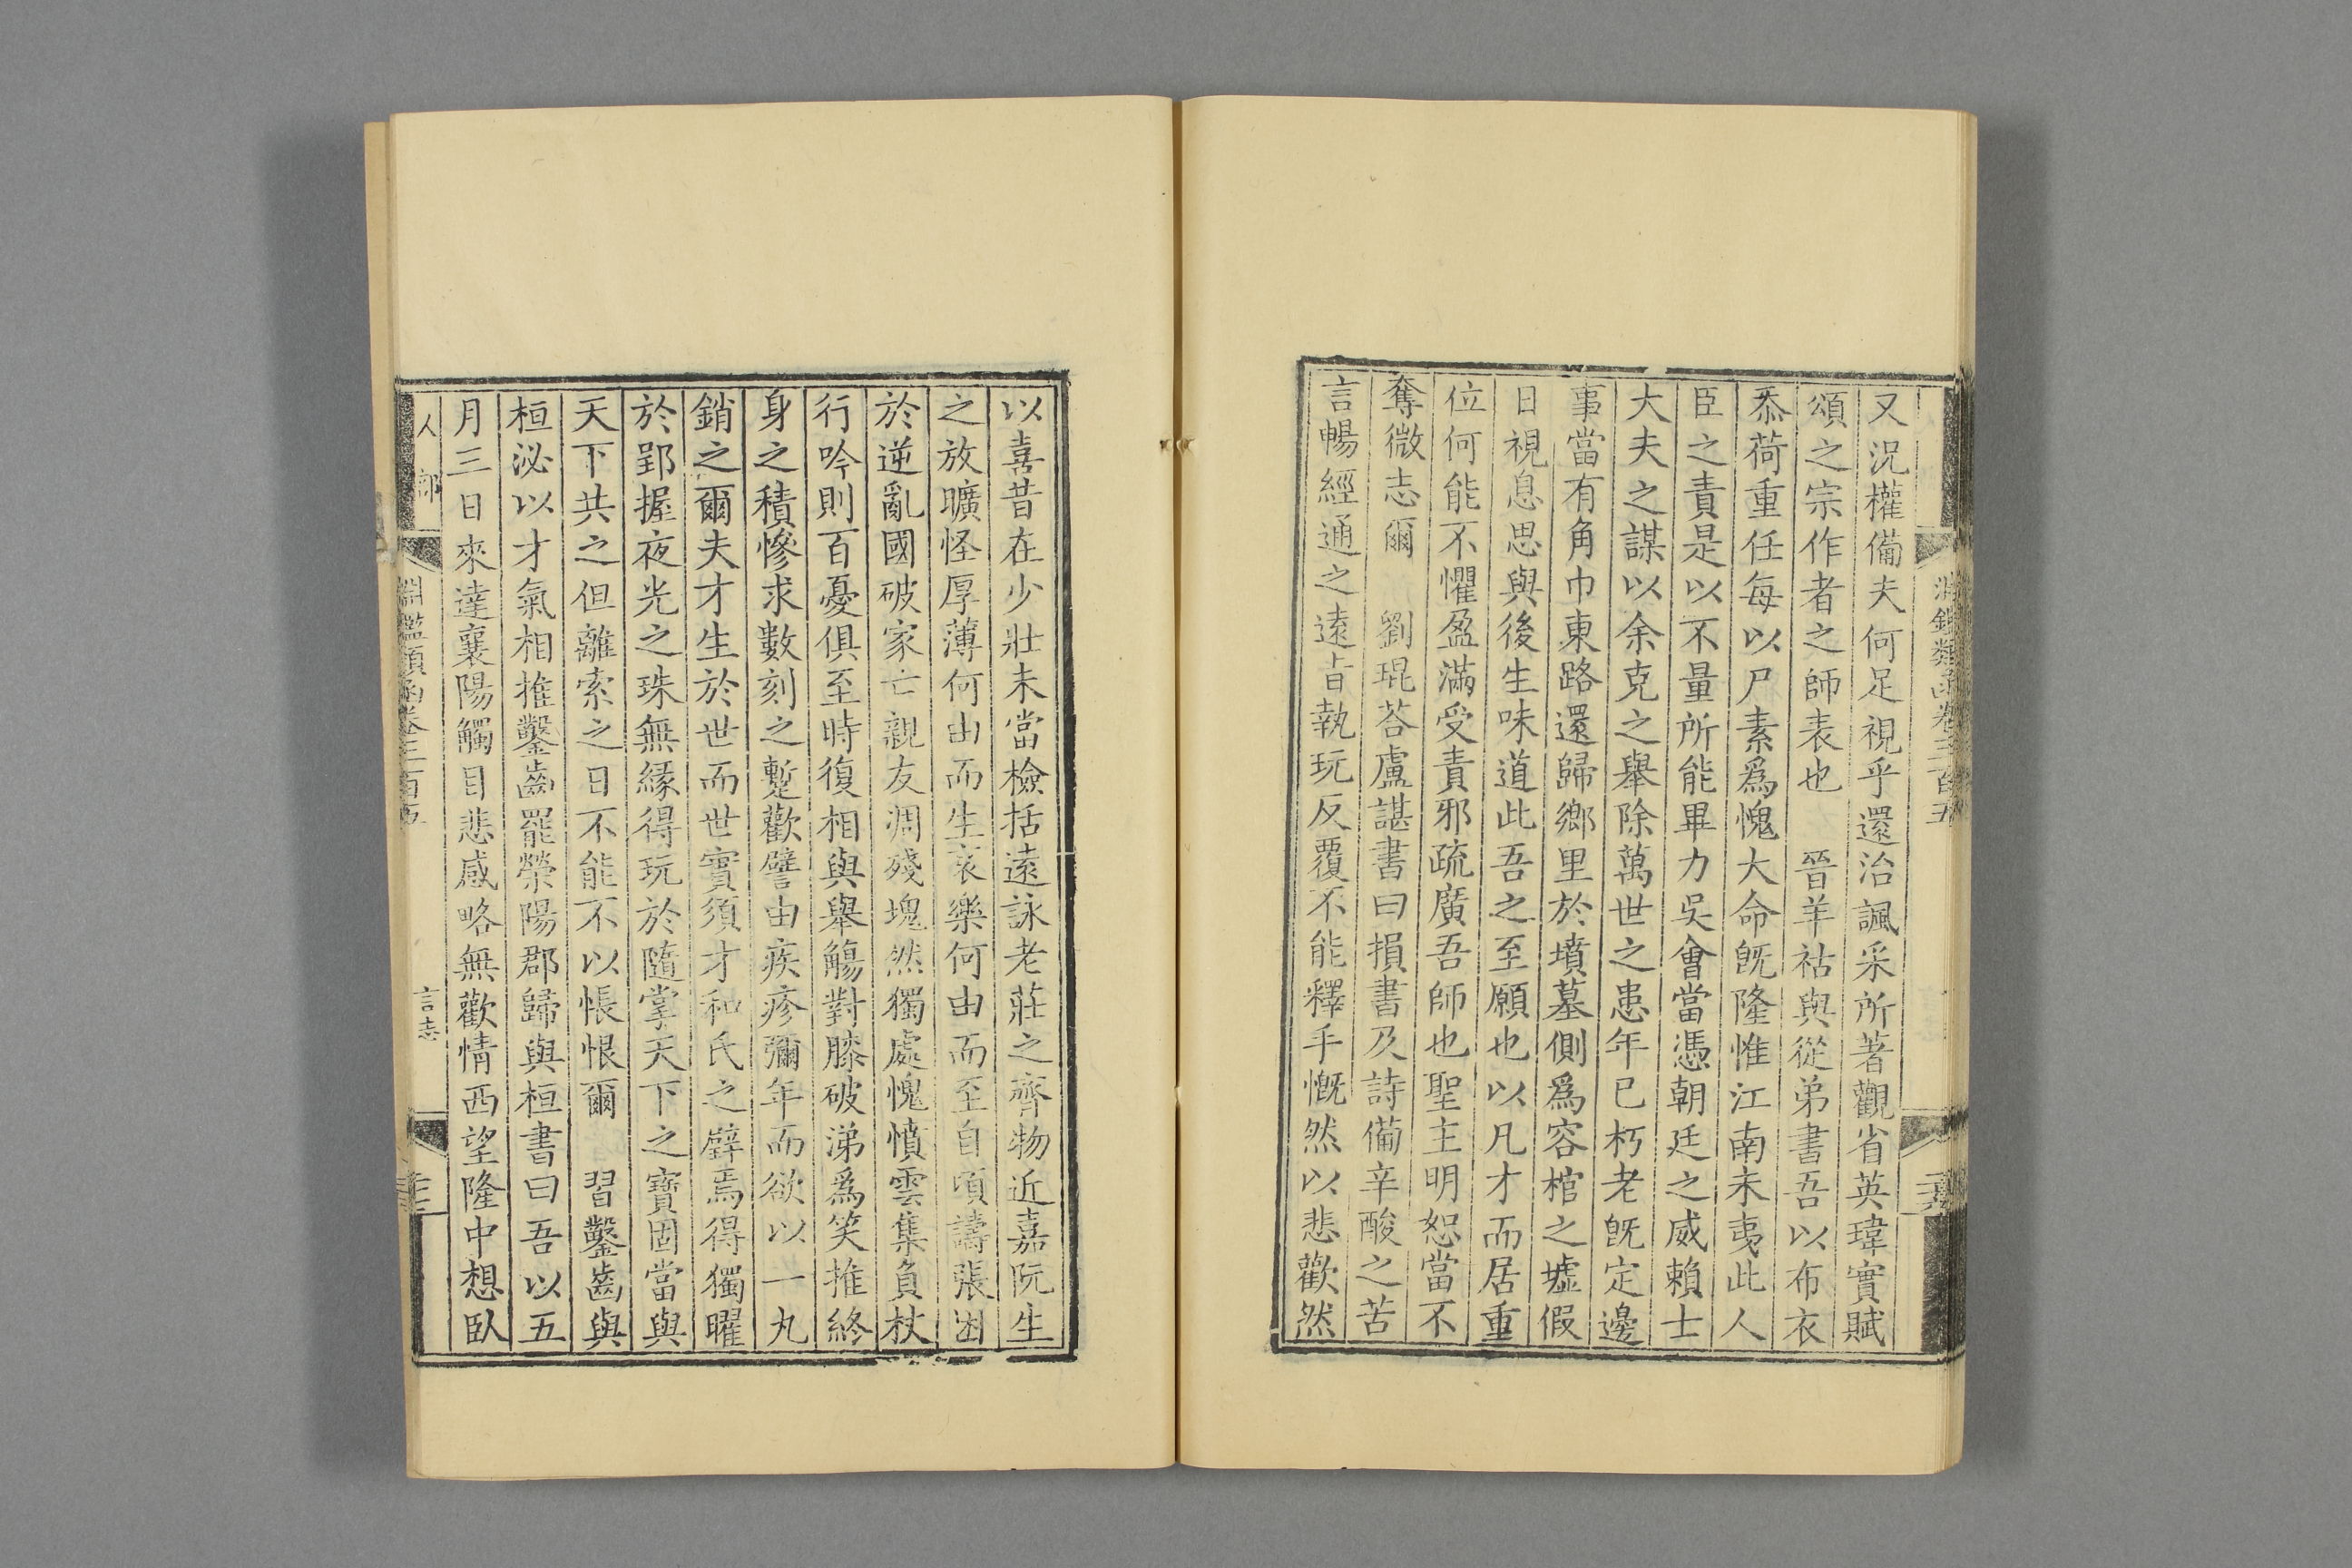 淵鑑類函卷三百五
又況權備夫何足視乎還治諷采所著觀省英瑋實賦
頌之宗作者之師表也　晉羊祜與從弟書吾以布衣
忝荷重任每以尸素爲愧大命既隆惟江南未夷此人
臣之責是以不量所能畢力吳會當憑朝廷之威賴士
大夫之謀以余克之舉除萬世之患年已朽老既定邊
事當有角巾東路還歸鄉里於墳墓側爲容棺之墟假
日視息思與後生味道此吾之至願也以凡才而居重
位何能不懼盈滿受責邪疏廣吾師也聖主明恕當不
奪微志爾　劉琨荅盧諶書曰損書及詩備辛酸之苦
言暢經通之遠旨執玩反覆不能釋手慨然以悲歡然
以喜昔在少壯未當檢括遠詠老莊之齊物近嘉阮生
之放曠怪厚薄何由而生哀樂何由而至自頃譸張困
於逆亂國破家亡親友凋殘塊然獨處愧憤雲集負杖
行吟則百憂俱至時復相與舉觴對膝破涕爲笑推終
身之積慘求數刻之蹔歡譬由疾疹彌年而欲以一丸
銷之爾夫才生於世而世實須才和氏之璧焉得獨曜
於郢握夜光之珠無緣得玩於隨掌天下之寶固當與
天下共之但離索之日不能不以悵恨爾　習鑿齒與
桓泌以才氣相推鑿齒罷滎陽郡歸與桓書曰吾以五
月三日來達襄陽觸目悲感略無歡情西望隆中想臥
人部
淵鑑類函卷三百五
言志